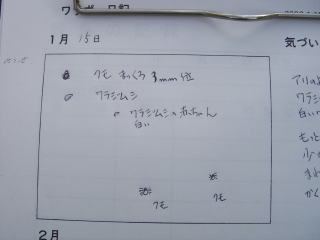 1月 15日
気づい
クモ まっくろ 3mm位
ワラジムシ
ワラジムシの赤ちゃん
白い
クモ
クモ
2月
アリの
ワラジ
白い
もっと
少
かく